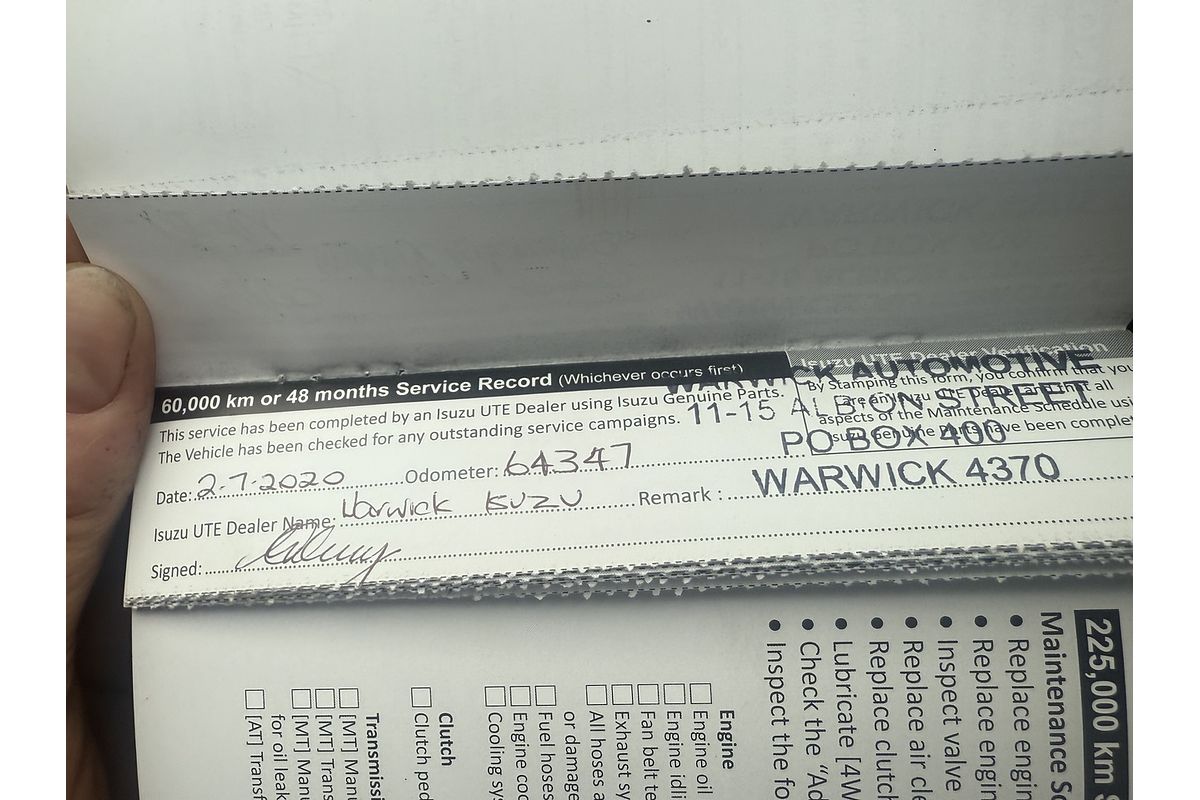 60,000 km or 48 months Service Record (Whichever occurs first)
This service has been completed by an Isuzu UTE Dealer using Isuzu Genuine Parts.
The Vehicle has been checked for any outstanding service campaigns.
Date: 2-7-2020 Odometer: 64347
Isuzu UTE Dealer Name: Warwick Isuzu Remark :
Signed:
Isuzu UTE Dealer Verification
By Stamping this form, you confirm that you
are an Isuzu UTE Dealer and that all
aspects of the Maintenance Schedule usi
Isuzu Genuine Parts have been complet
WARWICK AUTOMOTIVE
11-15 ALBION STREET
PO BOX 400
WARWICK 4370
225,000 km S
Maintenance Sc
• Replace engin
• Replace engin
• Inspect valve
• Replace air cle
• Replace clutch
• Lubricate [4W
• Check the "Ad
• Inspect the fo
Engine
Engine oil
Engine idli
Fan belt te
Exhaust sy
All hoses a
or damage
Fuel hoses
Engine coo
Cooling sys
Clutch
Clutch ped
Transmissi
[MT] Manu
[MT] Trans
[MT] Manu
for oil leak
[AT] Transf